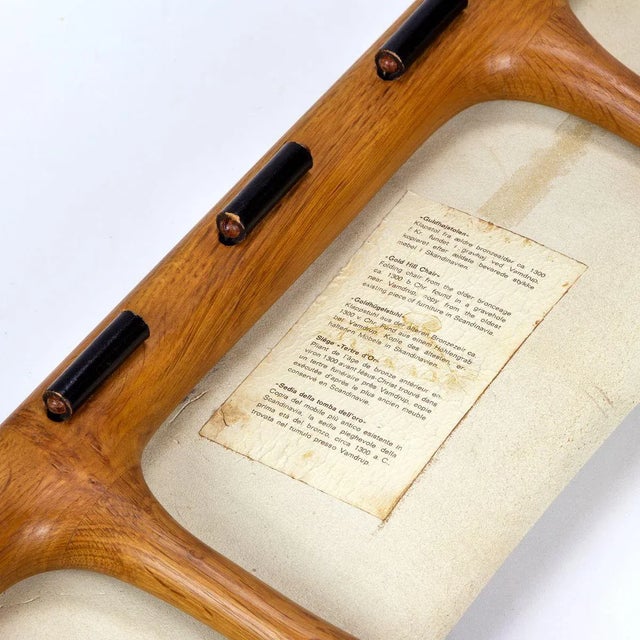 »Guldhøjstolen«
Klapstol fra ældre bronzealder ca. 1300
f. Kr. fundet i gravhøj ved Vamdrup,
kopieret efter ældste bevarede stykke
møbel i Skandinavien.
»Gold Hill Chair«
Folding chair from the older bronceage
ca. 1300 b. Chr. found in a gravehole
near Vamdrup, copy from the oldest
existing piece of furniture in Scandinavia.
»Goldhügelstuhl«
Klappstuhl aus der älteren Bronzezeit ca.
1300 v. Chr. Fund aus einem Hühlengrab
bei Vamdrup. Kopie des ältesten er-
haltenen Möbels in Skandinavien.
Siège »Tertre d'Or«
Pliant de l'âge de bronze antérieur, en-
viron 1300 avant Jésus Christ trouvé dans
un tertre funéraire près Vamdrup, copie
exécutée d'après le plus ancien meuble
conservé en Scandinavie.
»Sedia della tomba dell'oro«
Copia del mobile più antico esistente in
Scandinavia, la seifia pieghevole della
prima età del bronzo, circa 1300 a C.
trovata nel tumulo presso Vamdrup.